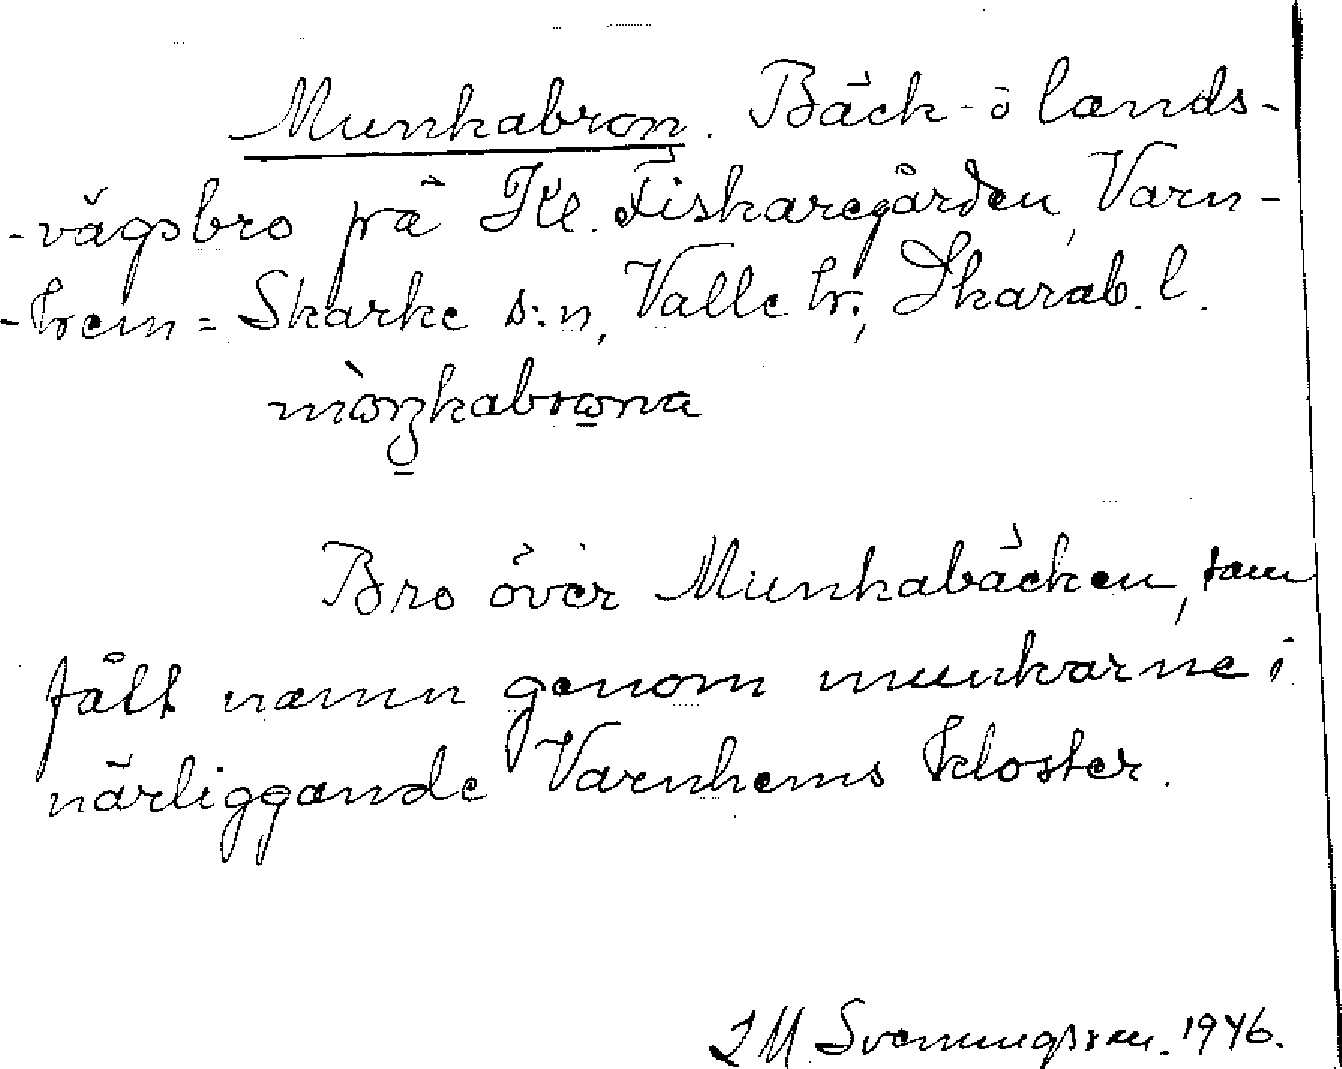 Munkabron. Bäck- o lands-
-vägsbro på Kl. Fiskaregården, Varn-
-hem = Skarke s:n, Valle hr., Skarab. l.
Bro över Munkabäcken, som
fått namn genom munkarne i
närliggande Varnhems kloster.
J M Svenungsson. 1946.